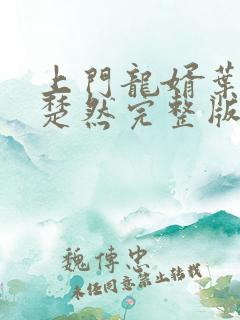 上門龍婿葉
楚然完整版
魏傳忠
未任同意禁止轉載